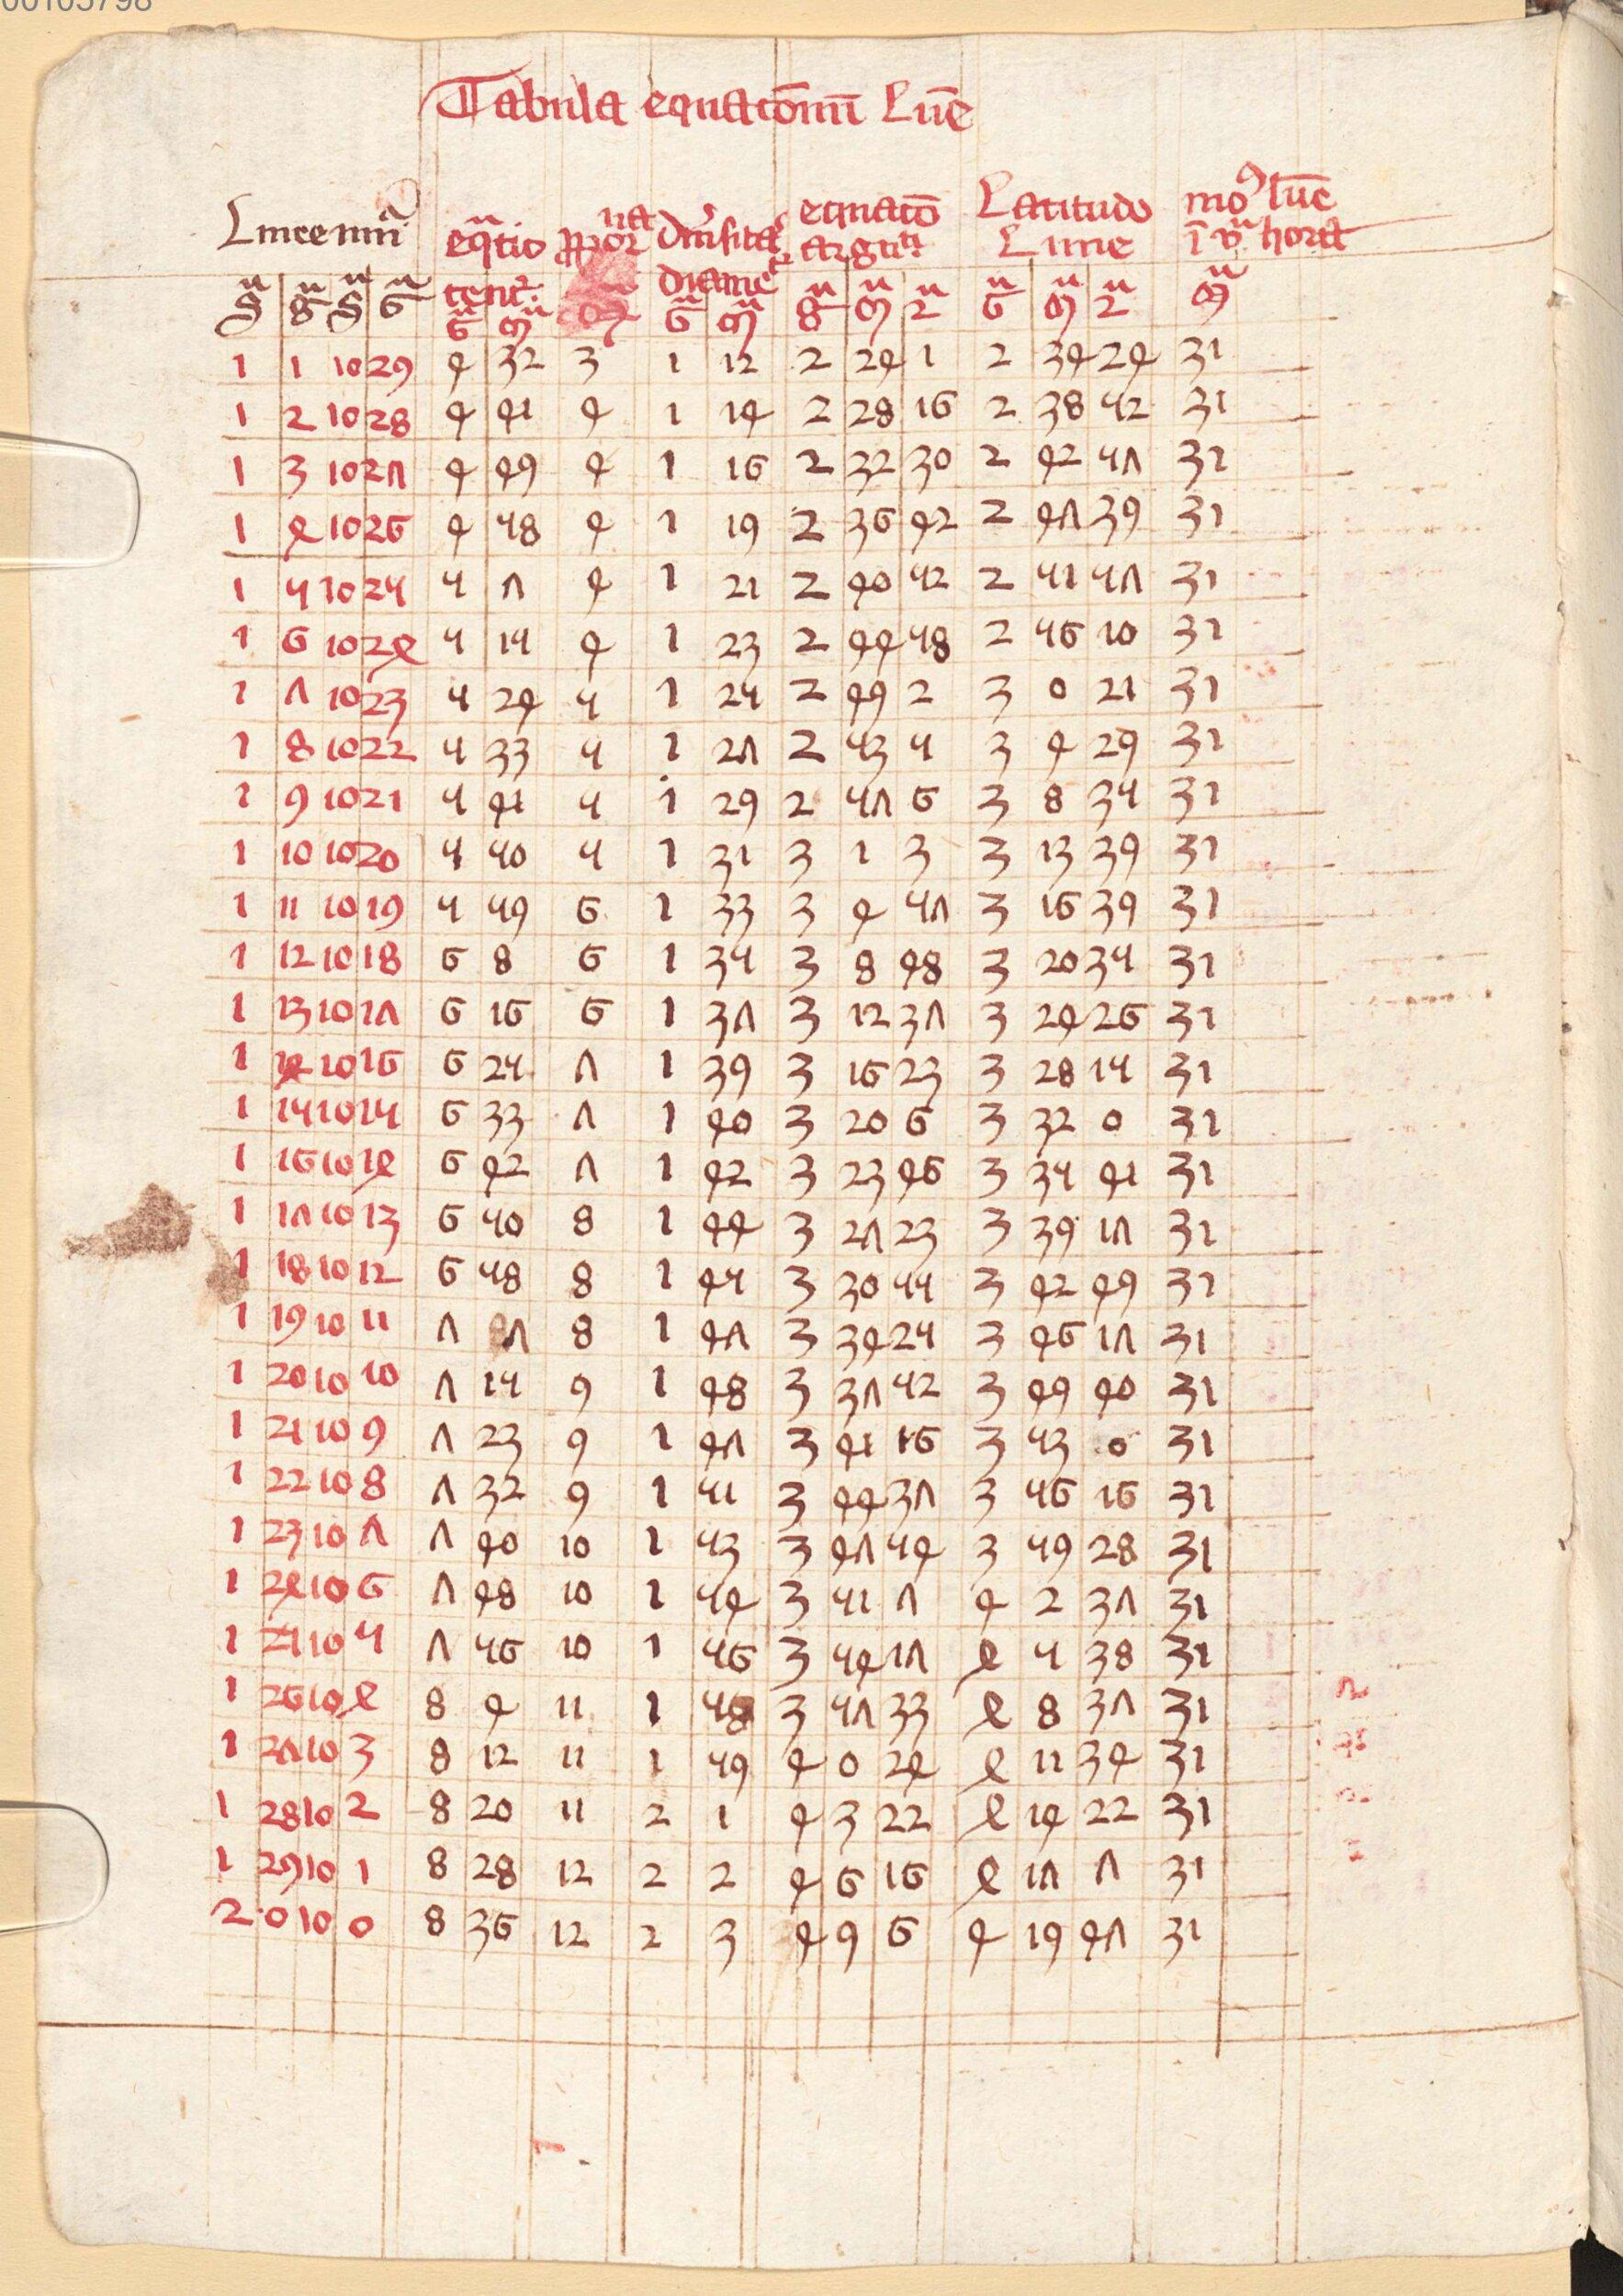 Tabula equacōnū Lūe
Linee nūi
eq̄tio
Diūsitas
equacō
argūti
Latitudo
Lune
mo⁹ lūe
ī v̄ hora
1 1 10 29 4 32 3 1 12 2 24 1 2 34 24 31
1 2 10 28 4 41 4 1 14 2 28 16 2 38 52 31
1 3 10 27 4 49 4 1 16 2 32 30 2 42 57 31
1 4 10 26 4 58 4 1 19 2 36 42 2 47 39 31
1 5 10 25 5 7 4 1 21 2 40 52 2 51 57 31
1 6 10 24 5 15 4 1 23 2 44 58 2 56 10 31
1 7 10 23 5 24 5 1 25 2 49 2 3 0 21 31
1 8 10 22 5 33 5 1 27 2 53 5 3 4 29 31
1 9 10 21 5 41 5 1 29 2 57 6 3 8 35 31
1 10 10 20 5 50 5 1 31 3 1 3 3 13 39 31
1 11 10 19 5 59 6 1 33 3 4 57 3 16 39 31
1 12 10 18 6 8 6 1 35 3 8 48 3 20 35 31
1 13 10 17 6 16 6 1 37 3 12 37 3 24 26 31
1 14 10 16 6 25 7 1 39 3 16 23 3 28 15 31
1 15 10 15 6 33 7 1 40 3 20 6 3 32 0 31
1 16 10 14 6 42 7 1 42 3 23 46 3 35 41 31
1 17 10 13 6 50 8 1 44 3 27 23 3 39 17 31
1 18 10 12 6 58 8 1 45 3 30 55 3 42 49 31
1 19 10 11 7 7 8 1 47 3 34 25 3 46 17 31
1 20 10 10 7 15 9 1 48 3 37 52 3 49 40 31
1 21 10 9 7 23 9 1 47 3 41 16 3 53 0 31
1 22 10 8 7 32 9 1 51 3 44 37 3 56 16 31
1 23 10 7 7 40 10 1 53 3 47 54 3 59 28 31
1 24 10 6 7 48 10 1 54 3 51 7 4 2 37 31
1 25 10 5 7 56 10 1 56 3 54 17 4 5 38 31
1 26 10 4 8 4 11 1 58 3 57 33 4 8 37 31
1 27 10 3 8 12 11 1 59 4 0 24 4 11 34 31
1 28 10 2 8 20 11 2 1 4 3 22 4 14 22 31
1 29 10 1 8 28 12 2 2 4 6 16 4 17 7 31
2 0 10 0 8 36 12 2 3 4 9 6 4 19 47 31